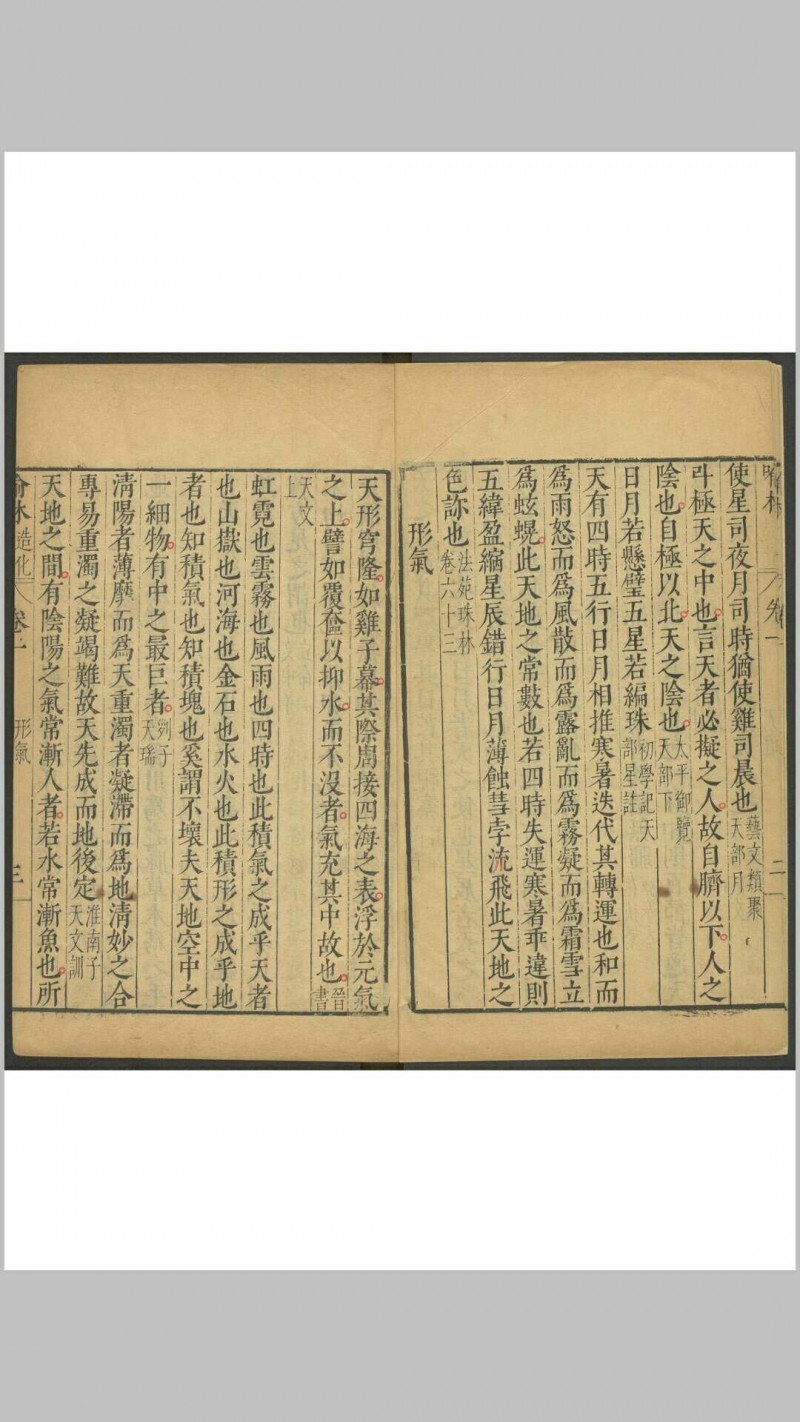 喻林 卷一 二
使星司夜月司時猶使雞司晨也藝文類聚天部月
斗極天之中也言天者必擬之人故自臍以下人之
陰也自極以北天之陰也太平御覽天部下
日月若懸璧五星若編珠初學記天部星註
天有四時五行日月相推寒暑迭代其轉運也和而
為雨怒而為風散而為露亂而為霧凝而為霜雪立
為蚿蜺此天地之常數也若四時失運寒暑乖違則
五緯盈縮星辰錯行日月薄蝕彗孛流飛此天地之
色診也法苑珠林卷六十三
形氣
天形穹隆如雞子幕其際周接四海之表浮於元氣
之上譬如覆奩以抑水而不没者氣充其中故也晉書
天文上
虹霓也雲霧也風雨也四時也此積氣之成乎天者
也山嶽也河海也金石也水火也此積形之成乎地
者也知積氣也知積塊也奚謂不壞夫天地空中之
一細物有中之最巨者列子天瑞
清陽者薄靡而爲天重濁者凝滯而爲地清妙之合
專易重濁之凝竭難故天先成而地後定淮南子天文訓
天地之間有陰陽之氣常漸人者若水常漸魚也所
喻林造化 卷一 形氣 三